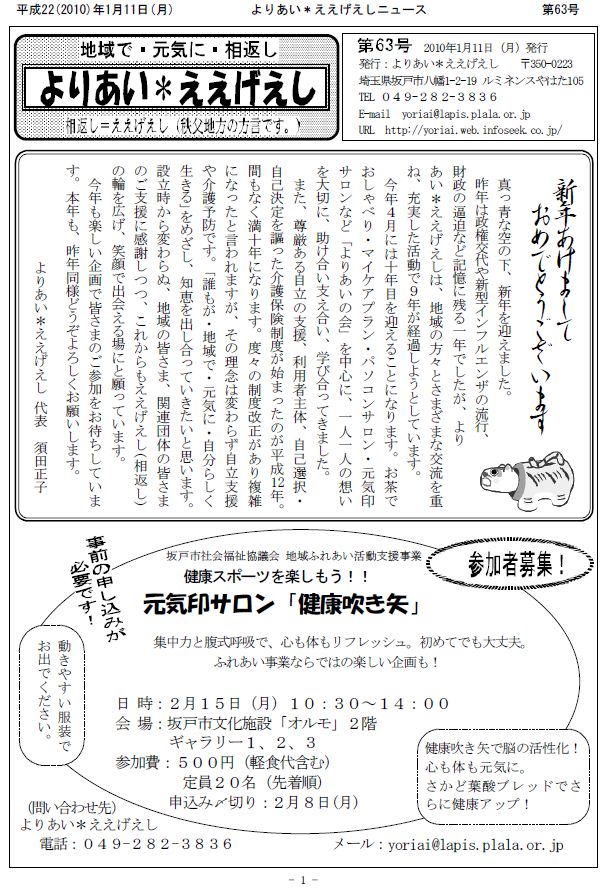 平成22(2010)年1月11日(月)　よりあい＊ええげえしニュース　第63号
地域で・元気に・相返し
よりあい＊ええげえし
相返し＝ええげえし（秩父地方の方言です。）
第63号　2010年1月11日（月）発行
発行：よりあい＊ええげえし　〒350-0223
埼玉県坂戸市八幡1-2-19 ルミネンスやはた105
TEL ０４９-２８２-３８３６
E-mail　yoriai@lapis.plala.or.jp
URL　http://yoriai.web.infoseek.co.jp/
新年あけまして
おめでとうございます
真っ青な空の下、新年を迎えました。
昨年は政権交代や新型インフルエンザの流行、
財政の逼迫など記憶に残る一年でしたが、より
あい＊ええげえしは、地域の方々とさまざまな交流を重
ね、充実した活動で９年が経過しようとしています。
今年４月には十年目を迎えることになります。お茶で
おしゃべり・マイケアプラン・パソコンサロン・元気印
サロンなど「よりあいの会」を中心に、一人一人の想い
を大切に、助け合い支え合い、学び合ってきました。
また、尊厳ある自立の支援、利用者主体、自己選択・
自己決定を謳った介護保険制度が始まったのが平成12年。
間もなく満十年になります。度々の制度改正があり複雑
になったと言われますが、その理念は変わらず自立支援
や介護予防です。「誰もが・地域で・元気に・自分らしく
生きる」をめざし、知恵を出し合っていきたいと思います。
設立時から変わらぬ、地域の皆さま、関連団体の皆さま
のご支援に感謝しつつ、これからもええげえし(相返し)
の輪を広げ、笑顔で出会える場にと願っています。
今年も楽しい企画で皆さまのご参加をお待ちしていま
す。本年も、昨年同様どうぞよろしくお願いします。
よりあい＊ええげえし　代表　須田正子
事前の申し込みが
必要です！
坂戸市社会福祉協議会 地域ふれあい活動支援事業
参加者募集！
健康スポーツを楽しもう！！
元気印サロン「健康吹き矢」
集中力と腹式呼吸で、心も体もリフレッシュ。初めてでも大丈夫。
ふれあい事業ならではの楽しい企画も！
動きやすい服装で
お出でください。
日 時：２月１５日（月）１０：３０～１４：００
会 場：坂戸市文化施設「オルモ」２階
ギャラリー１、２、３
参加費：５００円（軽食代含む）
定員２０名（先着順）
申込み〆切り：２月８日(月)
健康吹き矢で脳の活性化！
心も体も元気に。
さかど葉酸ブレッドでさ
らに健康アップ！
(問い合わせ先)
よりあい＊ええげえし
電話：０４９-２８２-３８３６　メール：yoriai@lapis.plala.or.jp
- 1 -